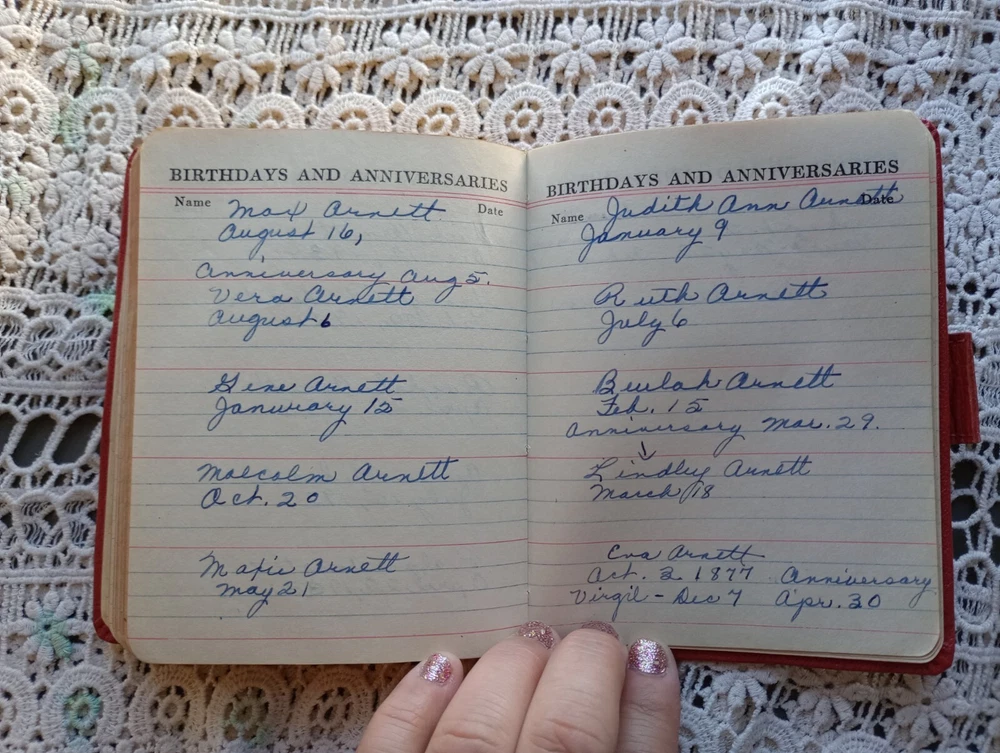 BIRTHDAYS AND ANNIVERSARIES
Name Max Arnett Date
August 16,
Anniversary Aug 5.
Vera Arnett
August 6
Gene Arnett
Januuary 15
Malcolm Arnett
Oct. 20
Maxie Arnett
May 21
BIRTHDAYS AND ANNIVERSARIES
Name Judith Ann Arnett Date
January 9
Ruth Arnett
July 6
Beulah Arnett
Feb. 15
Anniversary Mar. 29.
Lindley Arnett
March 18
Eva Arnett
Oct. 3 1877 Anniversary
Virgil - Dec 7 Apr. 30